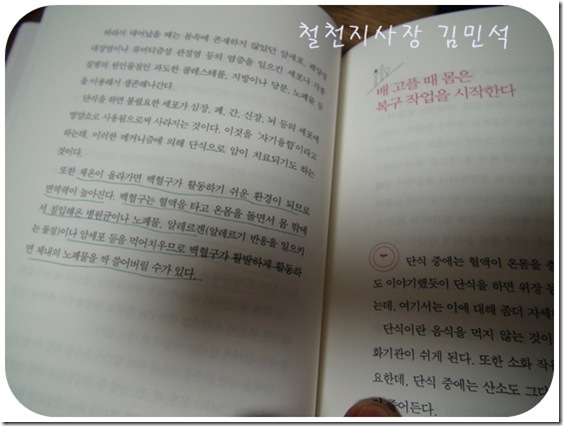 철천지사장 김민석
따라서 태어났을 때는 몸속에 존재하지 않았던 암세포, 궤양성
대장염이나 류머티즘성 관절염 등의 염증을 일으킨 세포나 각종
질병의 원인물질인 과도한 콜레스테롤, 지방이나 당분, 노폐물 등
을 이용해서 생존해나간다.
단식을 하면 불필요한 세포가 심장, 폐, 간, 신장, 뇌 등의 세포에
영양소로 사용됨으로써 사라지는 것이다. 이것을 '자기융합'이라고
하는데, 이러한 메커니즘에 의해 단식으로 암이 치료되기도 하는
것이다.
또한 체온이 올라가면 백혈구가 활동하기 쉬운 환경이 되므로
면역력이 높아진다. 백혈구는 혈액을 타고 온몸을 돌면서 몸 밖에
서 침입해온 병원균이나 노폐물, 알레르겐(알레르기 반응을 일으키
는 물질)이나 암세포 등을 먹어치우므로 백혈구가 활발하게 활동하
면 체내의 노폐물을 싹 쓸어버릴 수가 있다.
배 고플 때 몸은
복구 작업을 시작한다
단식 중에는 혈액이 온몸을
도 이야기했듯이 단식을 하면 위장 등
는데, 여기서는 이에 대해 좀더 자세
단식이란 음식을 먹지 않는 것이
화기관이 쉬게 된다. 또한 소화 작
요한데, 단식 중에는 산소도 그다
줄어든다.